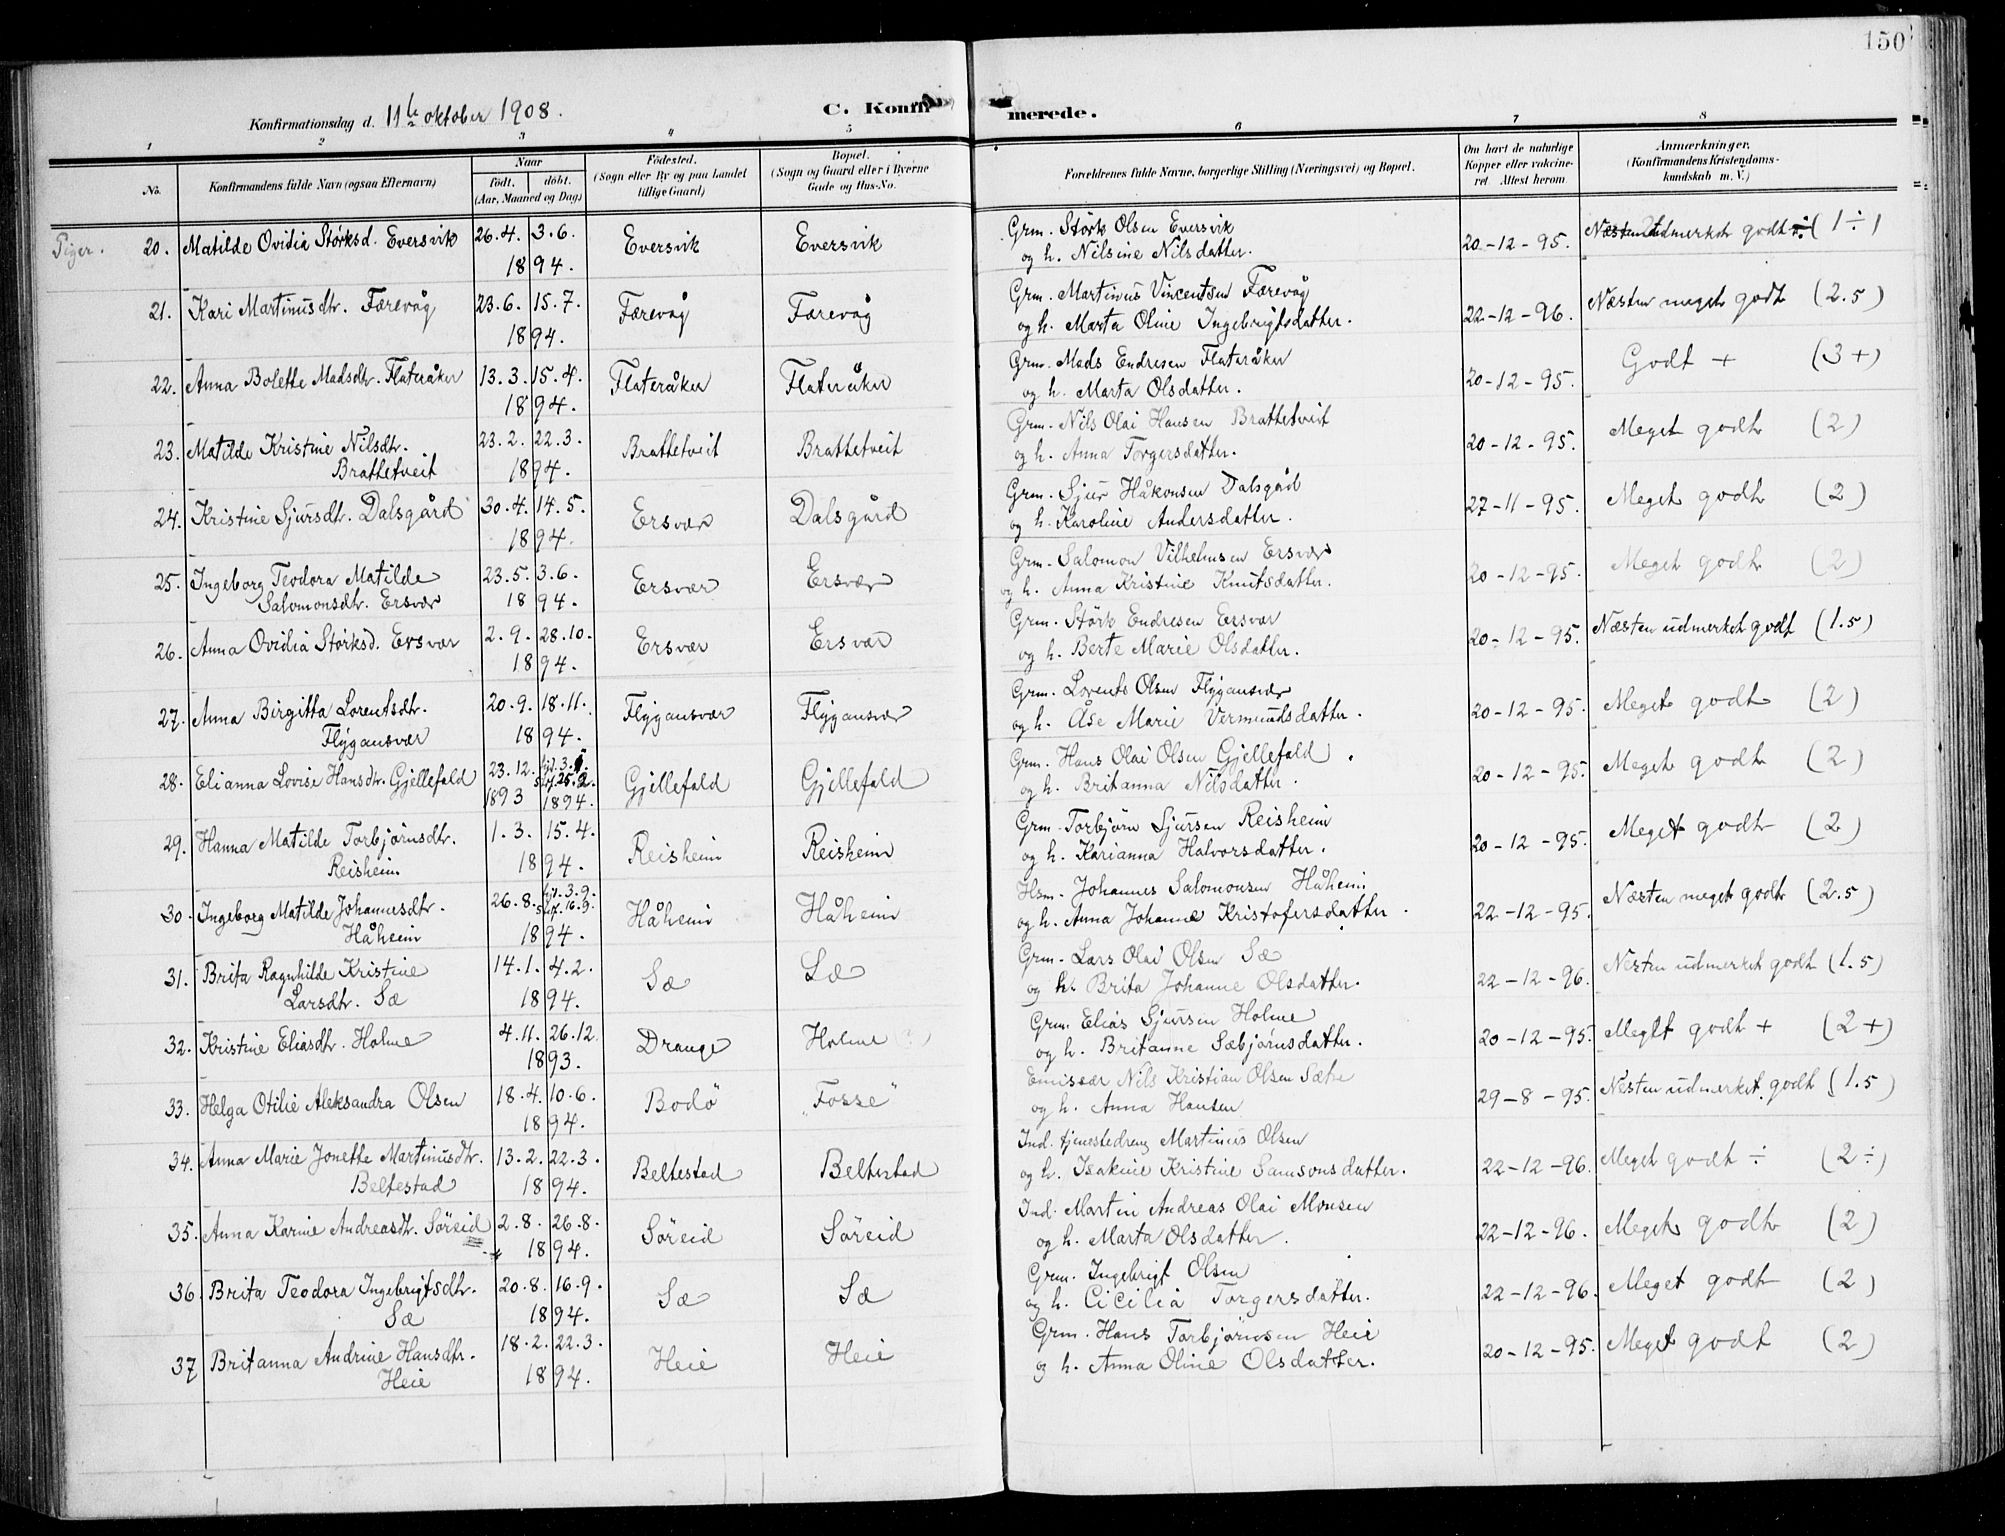 150
Konfirmationsdag d. 11te oktober 1908.
C. Konfirmerede.
1 2 3 4 5 6 7 8
No.
Konfirmandens fulde Navn (ogsaa Efternavn)
Naar
født. døbt.
(Aar, Maaned og Dag)
Fødested.
(Sogn eller By og paa Landet
tillige Gaard)
Bopæl.
(Sogn og Gaard eller i Byerne
Gade og Hus-No.
Forældrenes fulde Navne, borgerlige Stilling (Næringsvei) og Bopæl.
Om havt de naturlige
Kopper eller vakcine-
ret Attest herom
Anmærkninger.
(Konfirmandens Kristendoms-
kundskab m. V.)
Piger.
20. Matilde Ovidia Störksd. Eversvik 26.4. 3.6. 1894. Eversvik Eversvik
Grm. Störk Olsen Eversvik
og h. Nilsine Nilsdatter. 20-12-95. Næsten udmerket godt ÷ (1÷)
21. Kari Martinusdtr. Færevåg 23.6. 15.7. 1894. Færevåg Færevåg
Grm. Martinus Vincentsen Færevåg
og h. Marta Oline Ingebrigtsdatter. 22-12-96. Næsten meget godt (2.5)
22. Anna Bolette Madsdtr. Flateråker 13.3. 15.4. 1894. Flateråker Flateråker
Grm. Mads Endresen Flateråker
og h. Marta Olsdatter. 20-12-95. Godt + (3+)
23. Matilde Kristine Nilsdtr.
Brattetveit 23.2. 22.3. 1894. Brattetveit Brattetveit
Grm. Nils Olai Hansen Brattetveit
og h. Anna Torgersdatter. 20-12-95. Meget godt (2)
24. Kristine Sjursdtr. Dalsgård 30.4. 14.5. 1894. Ersvær Dalsgård
Grm. Sjur Håkonsen Dalsgård
og h. Karoline Andersdatter. 27-11-95. Meget godt (2)
25. Ingeborg Teodora Matilde
Salomonsdtr. Ersvær 23.5. 3.6. 1894. Ersvær Ersvær
Grm. Salomon Vilhelmsen Ersvær
og h. Anna Kristine Knutsdatter. 20-12-95. Meget godt (2)
26. Anna Ovidia Störksd. Ersvær 2.9. 28.10. 1894. Ersvær Ersvær
Grm. Störk Endresen Ersvær
og h. Berte Marie Olsdatter. 20-12-95. Næsten udmerket godt (1.5)
27. Anna Birgitta Lorentsdtr.
Flygansvær 20.9. 18.11. 1894. Flygansvær Flygansvær
Grm. Lorents Olsen Flygansvær
og h. Åse Marie Vermundsdatter. 20-12-95. Meget godt (2)
28. Elianna Lovise Hansdtr. Gjellefald 23.12. 1893 1894. Gjellefald Gjellefald
Grm. Hans Olai Olsen Gjellefald.
og h. Britanna Nilsdatter. 20-12-95. Meget godt (2)
29. Hanna Matilde Torbjörnsdtr.
Reisheim 1.3. 15.4. 1894. Reisheim Reisheim
Grm. Torbjörn Sjursen Reisheim
og h. Karianna Halvorsdatter. 20-12-95. Meget godt (2)
30. Ingeborg Matilde Johannesdtr.
Håheim 26.8. hjd. 3.9. stf. 16.9. 1894. Håheim Håheim
Hsm. Johannes Salomonsen Håheim
og h. Anna Johanne Kristofersdatter. 22-12-95. Næsten meget godt (2.5)
31. Brita Ragnhilde Kristine
Larsdtr. Sæ 14.1. 4.2. 1894. Sæ Sæ
Grm. Lars Olai Olsen Sæ
og h. Brita Johanne Olsdatter. 22-12-96. Nesten udmerket godt (1.5)
32. Kristine Eliasdtr. Holme 4.11. 26.12. 1893. Drange Holme
Grm. Elias Sjursen Holme
og h. Britanne Sæbjörnsdatter. 20-12-95. Meget godt + (2+)
33. Helga Otilie Aleksandra Olsen 18.4. 10.6. 1894. Bodö Fosse
Emissær Nils Kristian Olsen Sætre
og h. Anna Hansen 29-8-95. Nesten udmerket godt (1.5)
34. Anna Marie Jonette Martinusdtr.
Beltestad 13.2. 22.3. 1894. Beltestad Beltestad
Ind. tjenestedreng Martinus Olsen
og h. Isakine Kristine Samsonsdatter. 22-12-96. Meget godt ÷ (2÷)
35. Anna Karine Andreasdtr. Söreid 2.8. 26.8. 1894. Söreid Söreid
Ind. Martin Andreas Olai Monsen
og h. Marta Olsdatter. 22-12-96. Meget godt (2)
36. Brita Teodora Ingebrigtsdtr.
Sæ 20.8. 16.9. 1894. Sæ Sæ
Grm. Ingebrigt Olsen
og h. Cicilia Torgersdatter. 22-12-96. Meget godt (2)
37 Britanna Andrine Hansdtr.
Heie 18.2. 22.3. 1894. Heie Heie
Grm. Hans Torbjörnsen Heie
og h. Anna Oline Olsdatter. 20-12-95. Meget godt (2)